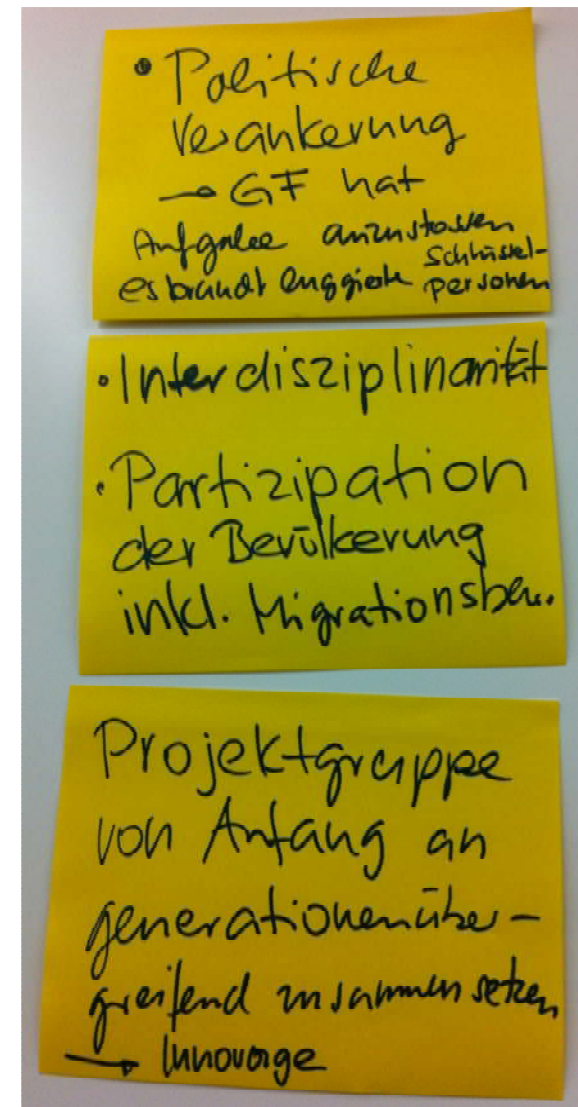 • Politische
Verankerung
→ GF hat
Aufgabe anzustossen
es braucht engagierte Schlüssel-
personen
• Interdisziplinarität
• Partizipation
der Bevölkerung
inkl. Migrationsbev.
Projektgruppe
von Anfang an
generationenüber-
greifend zusammensetzen
→ Innovage